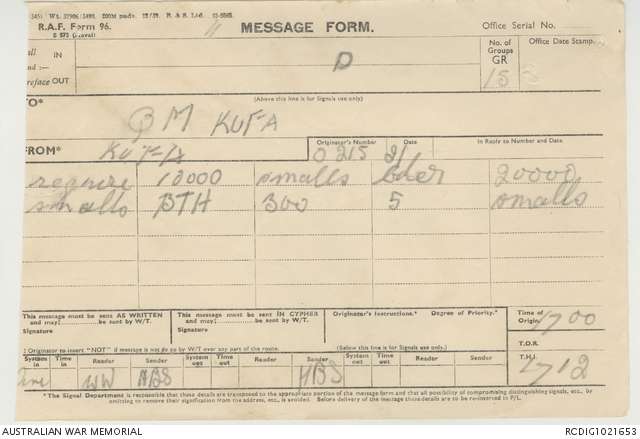 R.A.F. Form 96.
MESSAGE FORM.
Office Serial No.
IN
OUT
No. of Groups GR
Office Date Stamp
D
15
TO*
(Above this line is for Signals use only)
QM KUFA
FROM*
Originator's Number
Date
In Reply to Number and Date
O 215 21
require 10000 smalls 20000
smalls BTH 300 5 smalls
This message must be sent AS WRITTEN and may: be sent by W/T.
Signature
This message must be sent IN CYPHER and may: be sent by W/T.
Signature
Originator's Instructions.*
Degree of Priority.*
Time of Origin.
1700
‡ Originator to insert "NOT" if message is not to go by W/T over any part of the route.
(Below this line is for Signals use only.)
T.O.R.
System in
Time in
Reader
Sender
System out
Time out
Reader
Sender
System out
Time out
Reader
Sender
T.H.I.
WW HBS HBS 1712
*The Signal Department is responsible that these details are transposed to the appropriate portion of the message form and that all possibility of compromising distinguishing signals, etc., by
omitting to remove their signification from the address, etc., is avoided. Before delivery of the message these details are to be re-inserted in P/L.
AUSTRALIAN WAR MEMORIAL
RCDIG1021653